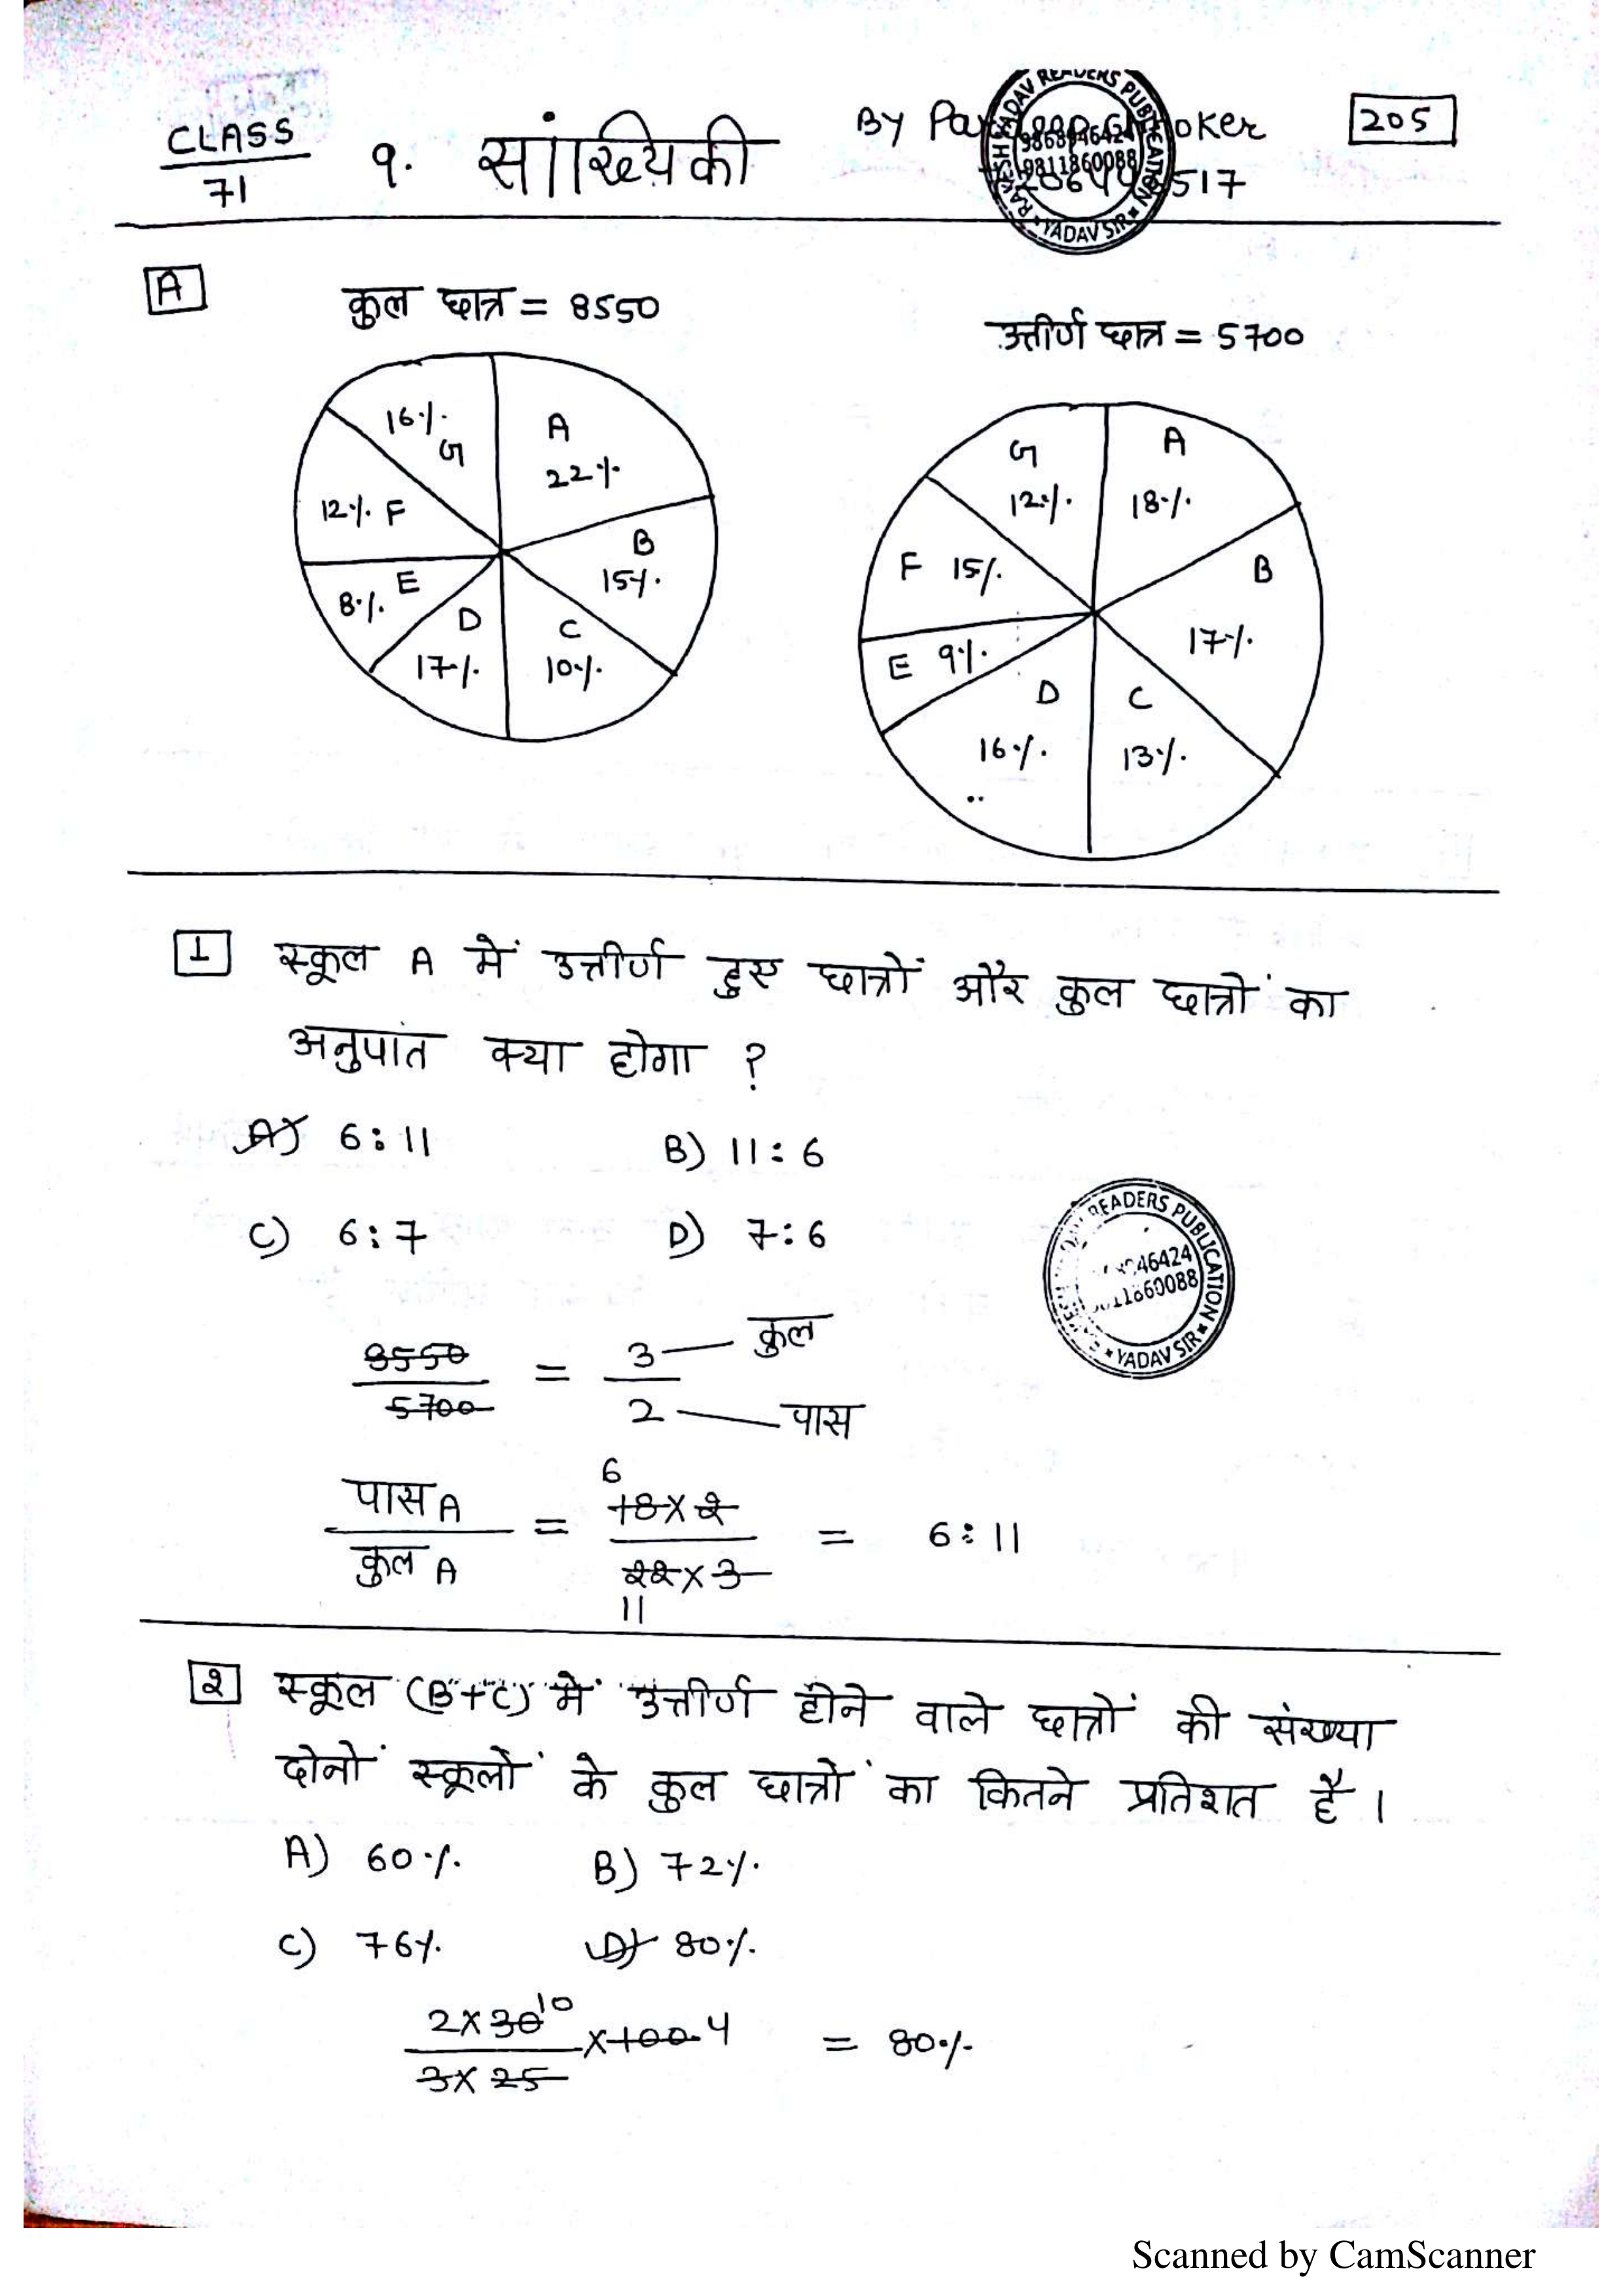 CLASS
71
१. सांख्यिकी
By
205
A
कुल छात्र = 8550
उत्तीर्ण छात्र = 5700
16%
G
A
22%
12% F
B
15%
8% E
D
17%
C
10%
G
12%
A
18%
F 15%
B
17%
E 9%
D
16%
C
13%
1 स्कूल A में उत्तीर्ण हुए छात्रों और कुल छात्रों का
अनुपात क्या होगा ?
A) 6:11 B) 11:6
C) 6:7 D) 7:6
READERS PUBLICATION
YADAV SIR
8550
5700
=
3 — कुल
2 — पास
पास A
कुल A
=
6
18×2
22×3
11
= 6:11
२ स्कूल (B+C) में उत्तीर्ण होने वाले छात्रों की संख्या
दोनों स्कूलों के कुल छात्रों का कितने प्रतिशत है।
A) 60% B) 72%
C) 76% D) 80%
2×30 10
3×25
×100 4 = 80%
Scanned by CamScanner